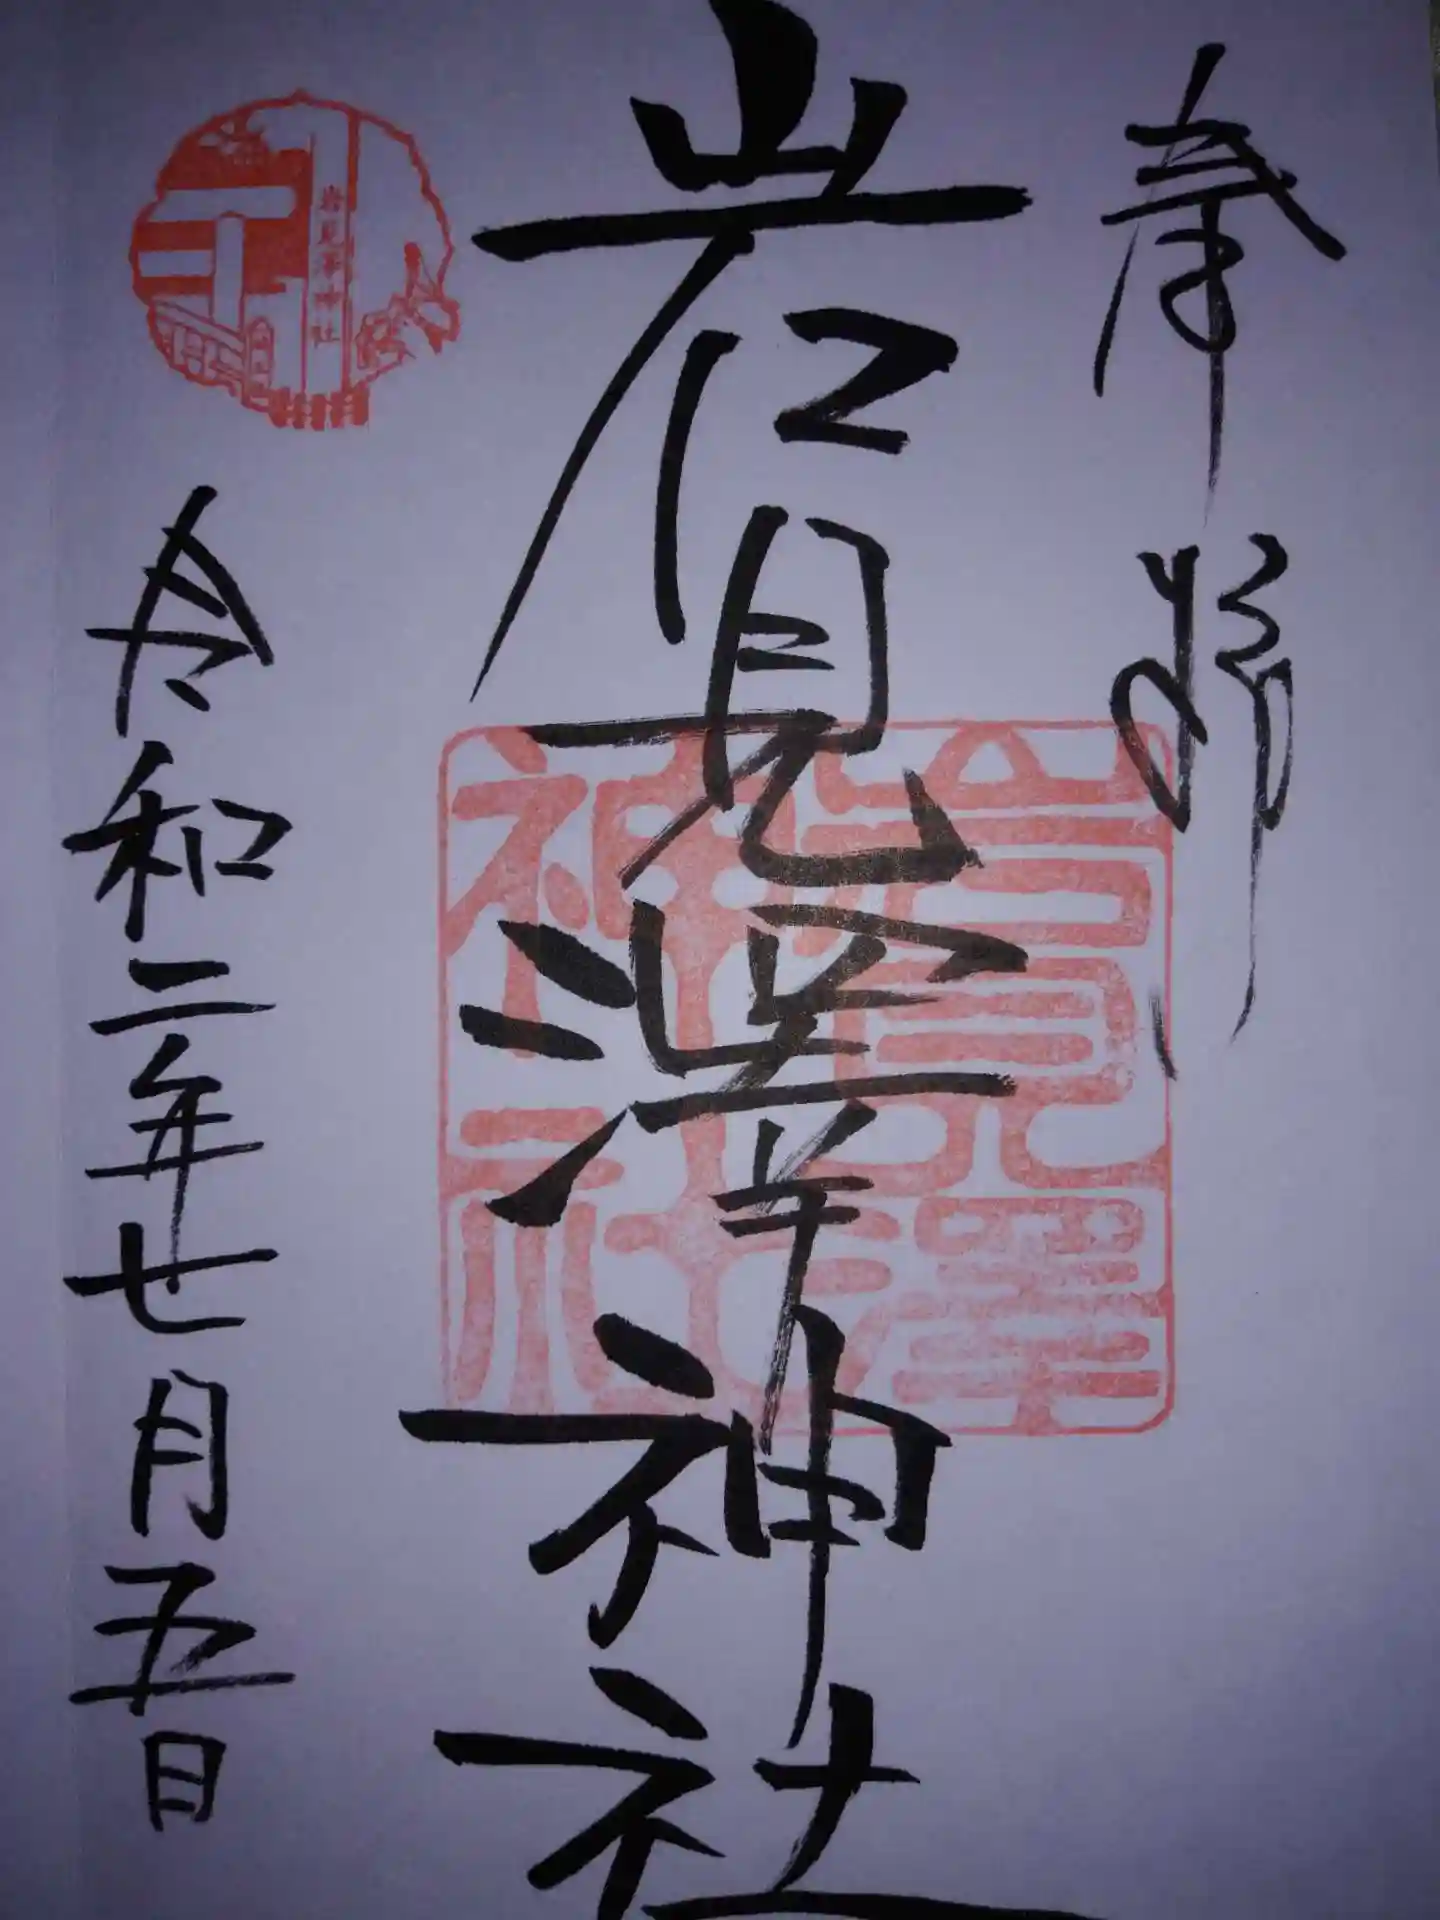 奉拝
岩見澤神社
岩見澤神社
岩見澤神社
令和二年七月五日